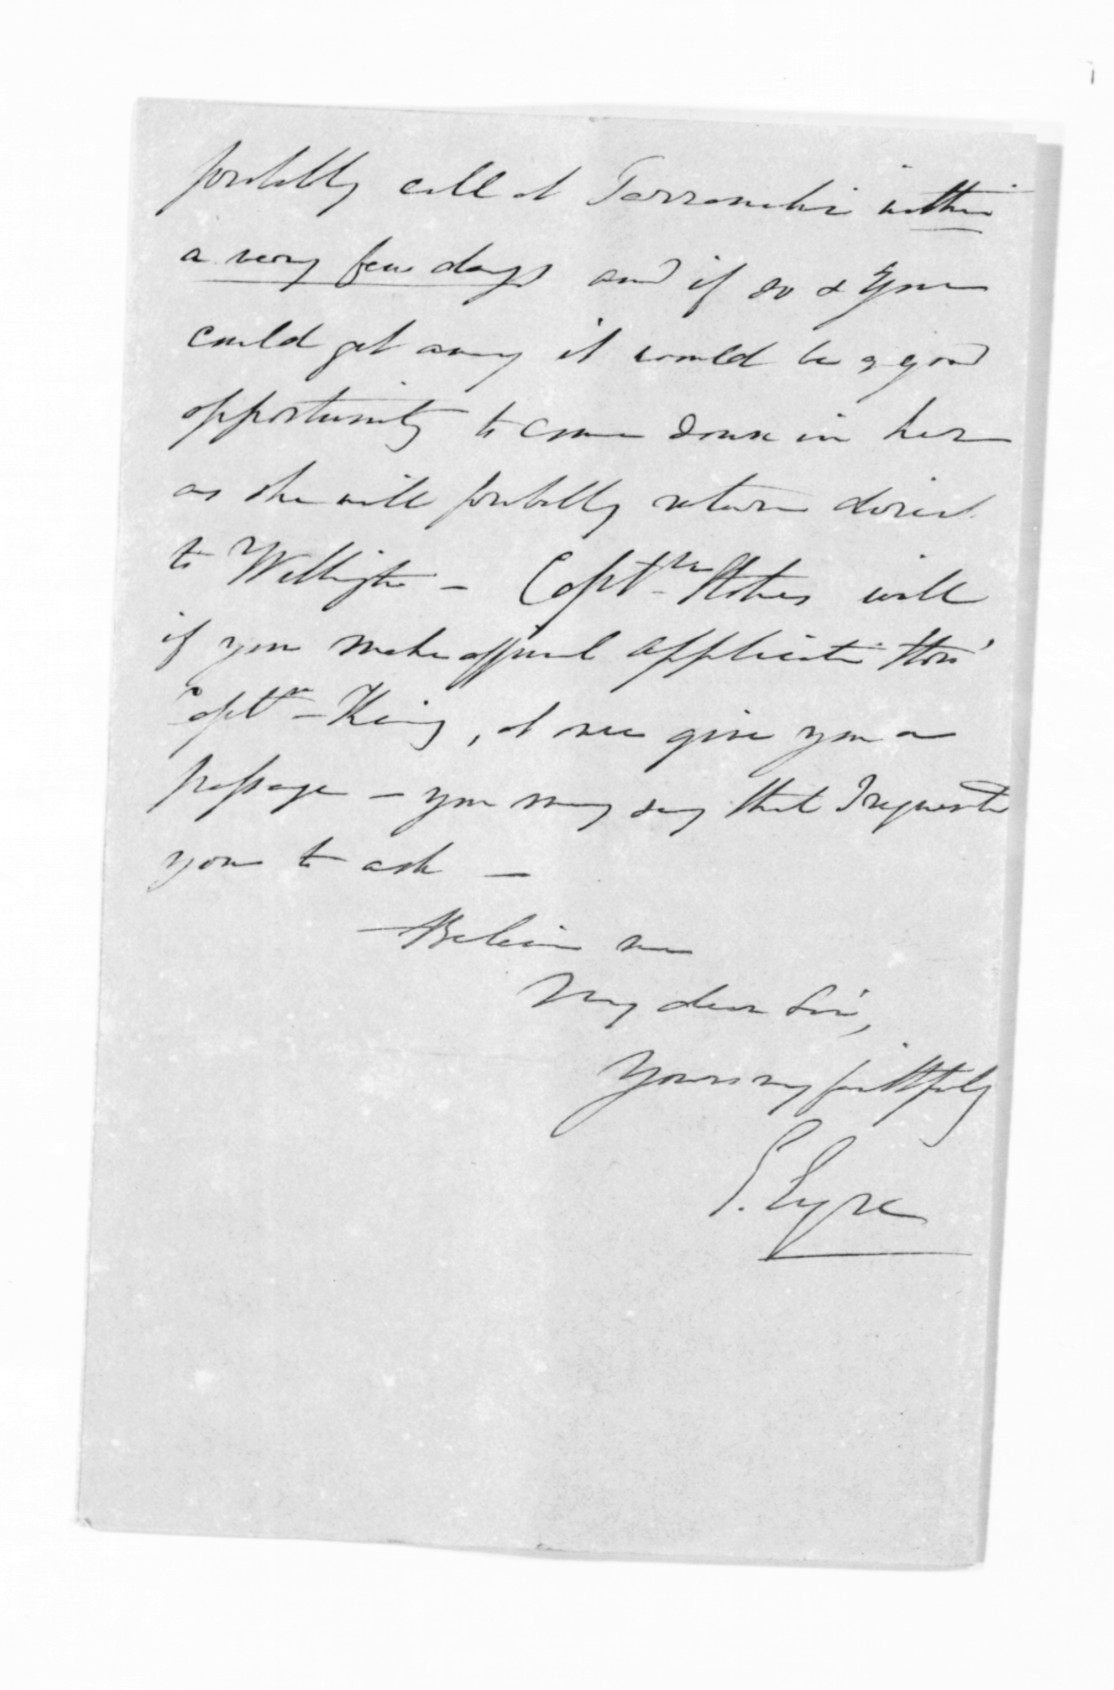 probably call at Tarranaki within
a very few days and if so & you
could get away it would be a good
opportunity to come down in her
as she will probably return direct
to Wellington – Captn Stokes will
if you make official application thro'
Captn – King, at once give you a
passage – you may say that I requested
you to ask –
Believe me
My dear Sir,
Yours very faithfully
E. Eyre